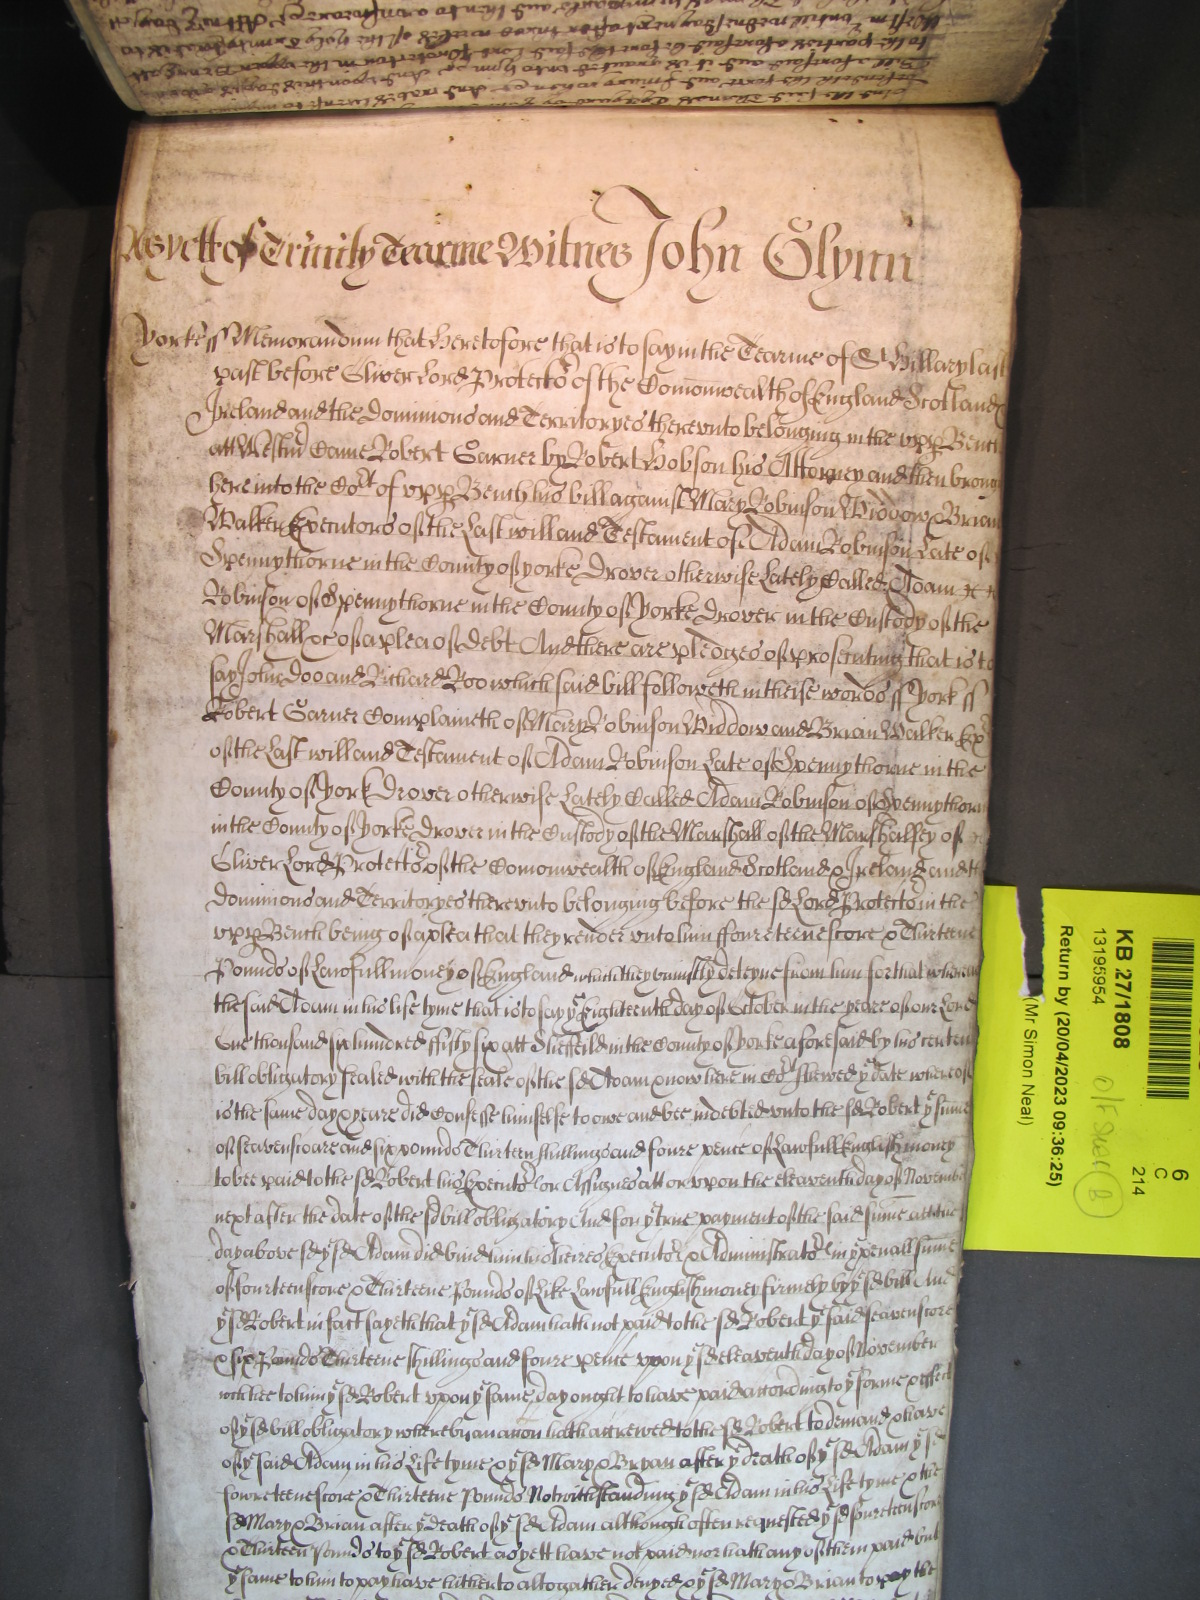 As yett of Trinity Tearme Witnes John Glynn
Yorke ss Memorandum that heretofore that is to say in the Tearme of St Hillary last
past before Oliver Lord Protector of the Comonwealth of England Scotland &
Ireland and the Dominions and Territoryes thereunto belonging in the upp Bench
att Westmr Came Robert Garner by Robert Hobson his Attorney and then brought
here into the Cort of upp Bench his bill against Mary Robinson Widdow & Brian
Walker Executors of the Last will and Testament of Adam Robinson Late of
Spennythorne in the County of yorke Drover otherwise Lately Called Adam
Robinson of Spennythorne in the County of Yorke Drover in the Custody of the
Marshall &c of a plea of debt And there are pledges of prosecuting that is to
say John Doo and Richard Roo which said bill followeth in theise words ss York ss
Robert Garner Complaineth of Mary Robinson Widdow and Brian Walker Exrs
of the Last will and Testament of Adam Robinson Late of Spennythorne in the
County of York Drover otherwise Lately Called Adam Robinson of Spennythorn
in the County of Yorke Drover in the Custody of the Marshall of the Marshalsey of
Oliver Lord Protector of the Comonwealth of England Scotland & Ireland and the
Dominions and Territoryes thereunto belonging before the sd Lord Protector in the
upp Bench being of a plea that they render unto him ffoureteene score & Thirteene
Pounds of Lawfull money of England which they uniustly deteyne from him for that whereas
the said Adam in his life tyme that is to say ye Eighteenth day of October in the yeare of our Lord
One thousand six hundred ffifty six att Sheffeild in the County of Yorke aforesaid by his certen
bill obligatory sealed with the seale of the sd Adam & now here in Cort shewed ye date whereof
is the same day & yeare did Confesse himselfe to owe and bee indebted unto the sd Robert ye sume
of seavenscoare and six pounds Thirteen shillings and foure pence of Lawfull English money
to bee paid to the sd Robert his Executors or Assignes att or upon the eleaventh day of November
next after the date of the sd bill obligatory And for ye true payment of the said sume att the
day above sd ye sd Adam did bind him his heires Executors & Administrators in ye penall sume
of fourteen score & Thirteene Pounds of Like Lawfull English money firmely by ye sd bill And
ye sd Robert in fact sayeth that ye sd Adam hath not paid to the sd Robert ye said seavenscore
& six Pounds Thirteene shillings and foure pence upon ye sd eleaventh day of November
which hee to him ye sd Robert upon ye same day ought to have paid according to ye forme & effect
of ye sd bill obligatory whereby an accon hath accrewed to the sd Robert to demand & have
of ye said Adam in his Life tyme & ye sd Mary & Bryan after ye death of ye sd Adam ye sd
fowreteene score & Thirteene Pounds Notwithstanding ye sd Adam in his Life tyme & the
sd Mary & Brian after ye death of ye sd Adam although often requested ye sd foureteen score
& Thirteen Pounds to ye sd Robert as yett have not paid nor hath any of them paid but
ye same to him to pay have hitherto altogather denyed & ye sd Mary & Brian to pay the
6
C
214
KB 27/1808
13195954
Return by (20/04/2023 09:36:25)
(Mr Simon Neal)